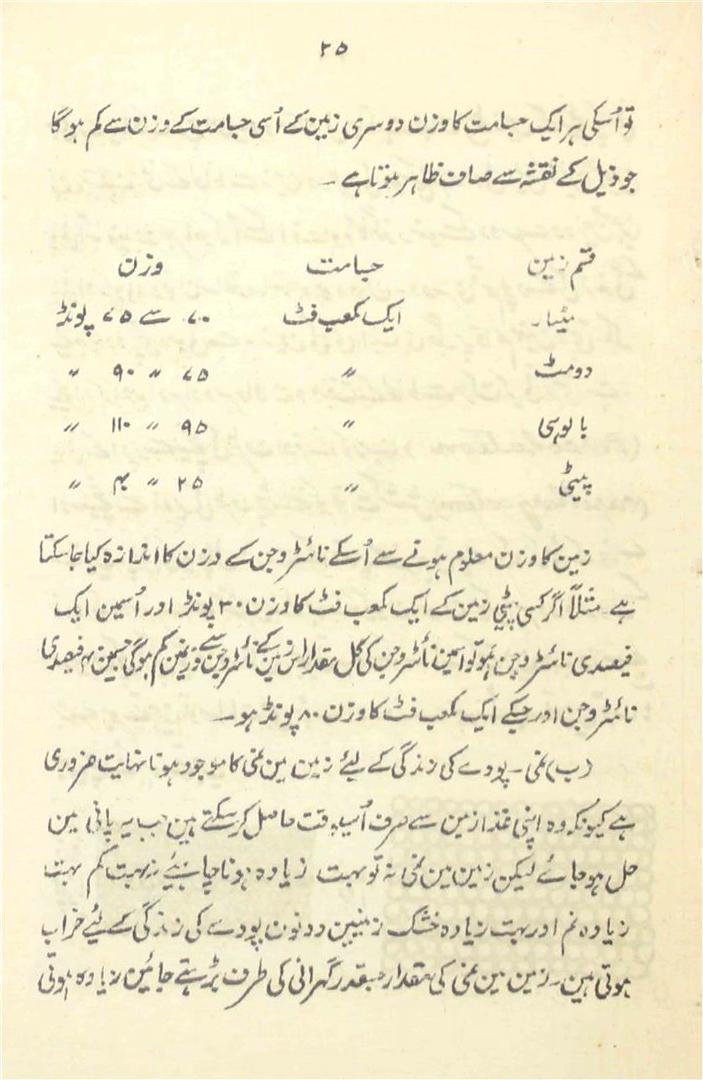 ۲۵
تو اُسکی ہر ایک جسامت کا وزن دوسری زمین کے اُسی جسامت کے وزن سے کم ہوگا
جو ذیل کے نقشہ سے صاف ظاہر ہوتا ہے ۔
قسم زمین جسامت وزن
مٹیار ایک مکعب فٹ ۷۰ سے ۷۵ پونڈ
دومٹ ″ ۷۵ ″ ۹۰ ″
بالوہی ″ ۹۵ ″ ۱۱۰ ″
پیٹی ″ ۲۵ ″ ۴۰ ″
زمین کا وزن معلوم ہونے سے اُسکے نائٹروجن کے وزن کا اندازہ کیا جا سکتا
ہے مثلاً اگر کسی پیٹی زمین کے ایک مکعب فٹ کا وزن ۳۰ پونڈ اور اُسمین ایک
فیصدی نائٹروجن ہو تو اسمین نائٹروجن کی کل مقدار اس زمین کے نائٹروجن سے وزن مین کم ہوگی جسمین ۴ء فیصدی
نائٹروجن اور جسکے ایک مکعب فٹ کا وزن ۸۰ پونڈ ہو ۔
(ب) نمی ۔ پودے کی زندگی کے لیئے زمین مین نمی کا موجود ہونا نہایت ضروری
ہے کیونکہ وہ اپنی غذا زمین سے صرف اُسیوقت حاصل کرسکتے ہین جب یہ پانی مین
حل ہوجائے لیکن زمین مین نمی نہ تو بہت زیادہ ہونا چاہیئے نہ بہت کم بہت
زیادہ نم اور بہت زیادہ خشک زمینین دونون پودے کی زندگی کے لیئے خراب
ہوتی ہین ۔ زمین مین نمی کی مقدار جسقدر گہرائی کی طرف بڑہتے جائین زیادہ ہوتی